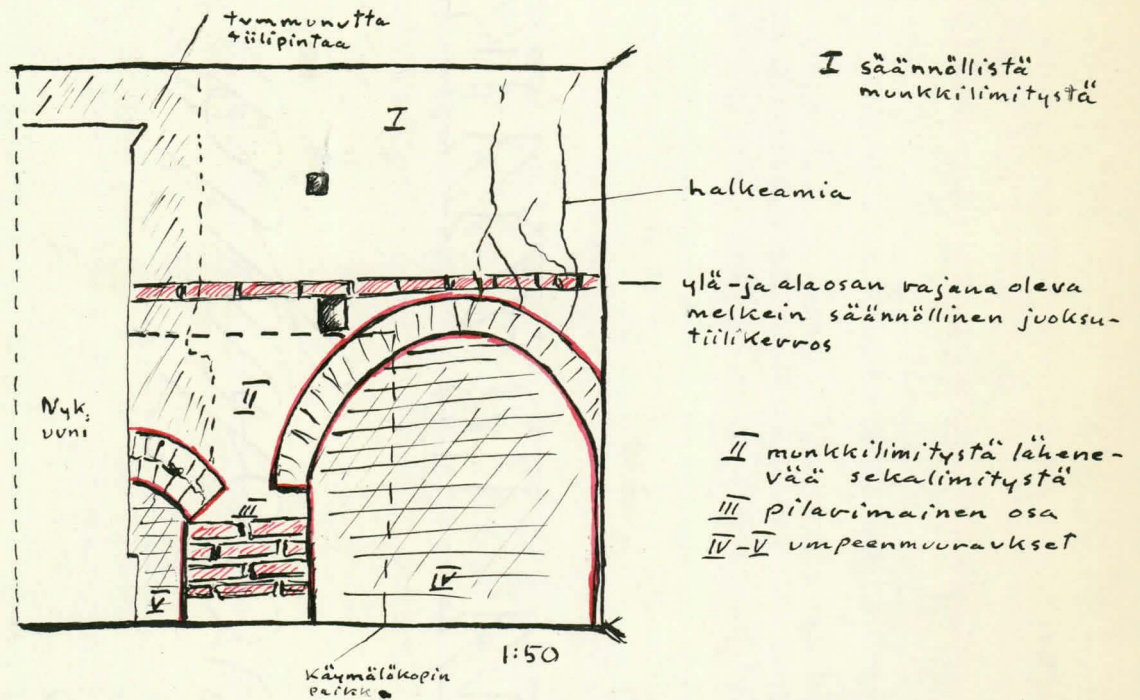 tummunutta
tiilipintaa
I
I säännöllistä
munkkilimitystä
halkeamia
ylä-ja alaosan rajana oleva
melkein säännöllinen juoksu-
tiilikerros
II
Nyk.
uuni
II munkkilimitystä lähene-
vää sekalimitystä
III
III pilarimainen osa
IV-V umpeenmuuraukset
IV
V
1:50
Käymäläkopin
paikka